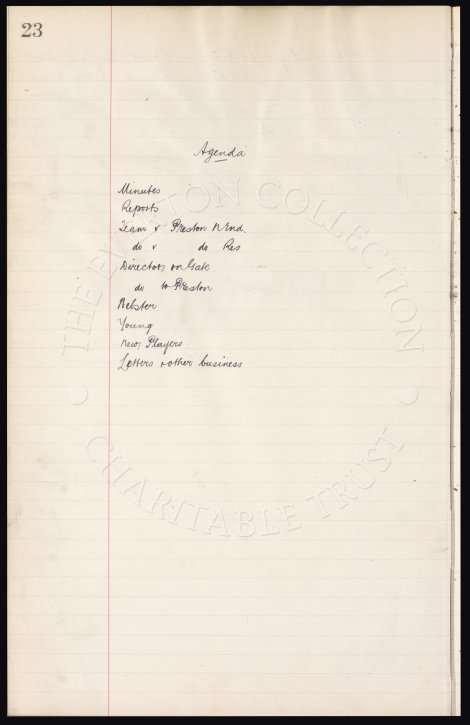 23
Agenda
Minutes
Reports
Team v Preston N End.
do v do Res
Directors on Gate
do to Preston
Webster
Young
New Players
Letters & other business
THE EVERTON COLLECTION
CHARITABLE TRUST